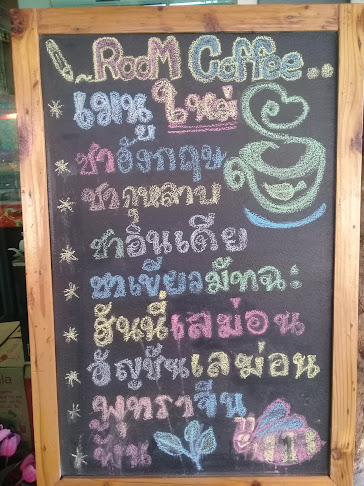 Room Coffee..
เมนูใหม่
ชาอังกฤษ
ชากุหลาบ
ชาอินเดีย
ชาเขียวมัทฉะ
ฮันนี่เลม่อน
อัญชันเลม่อน
พุทราจีน